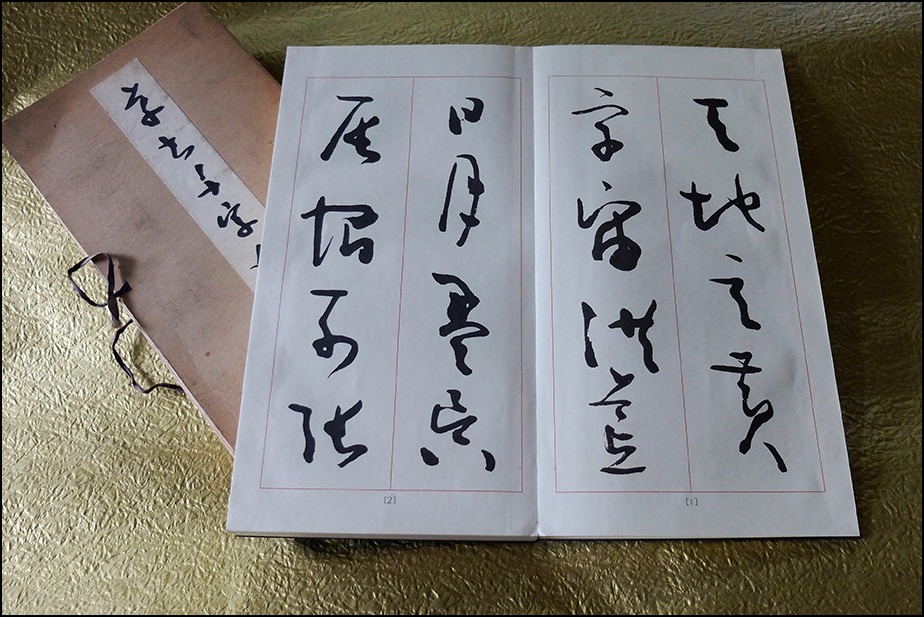 草書千字
天地玄黄
宇宙洪荒
[1]
日月盈昃
辰宿列張
[2]